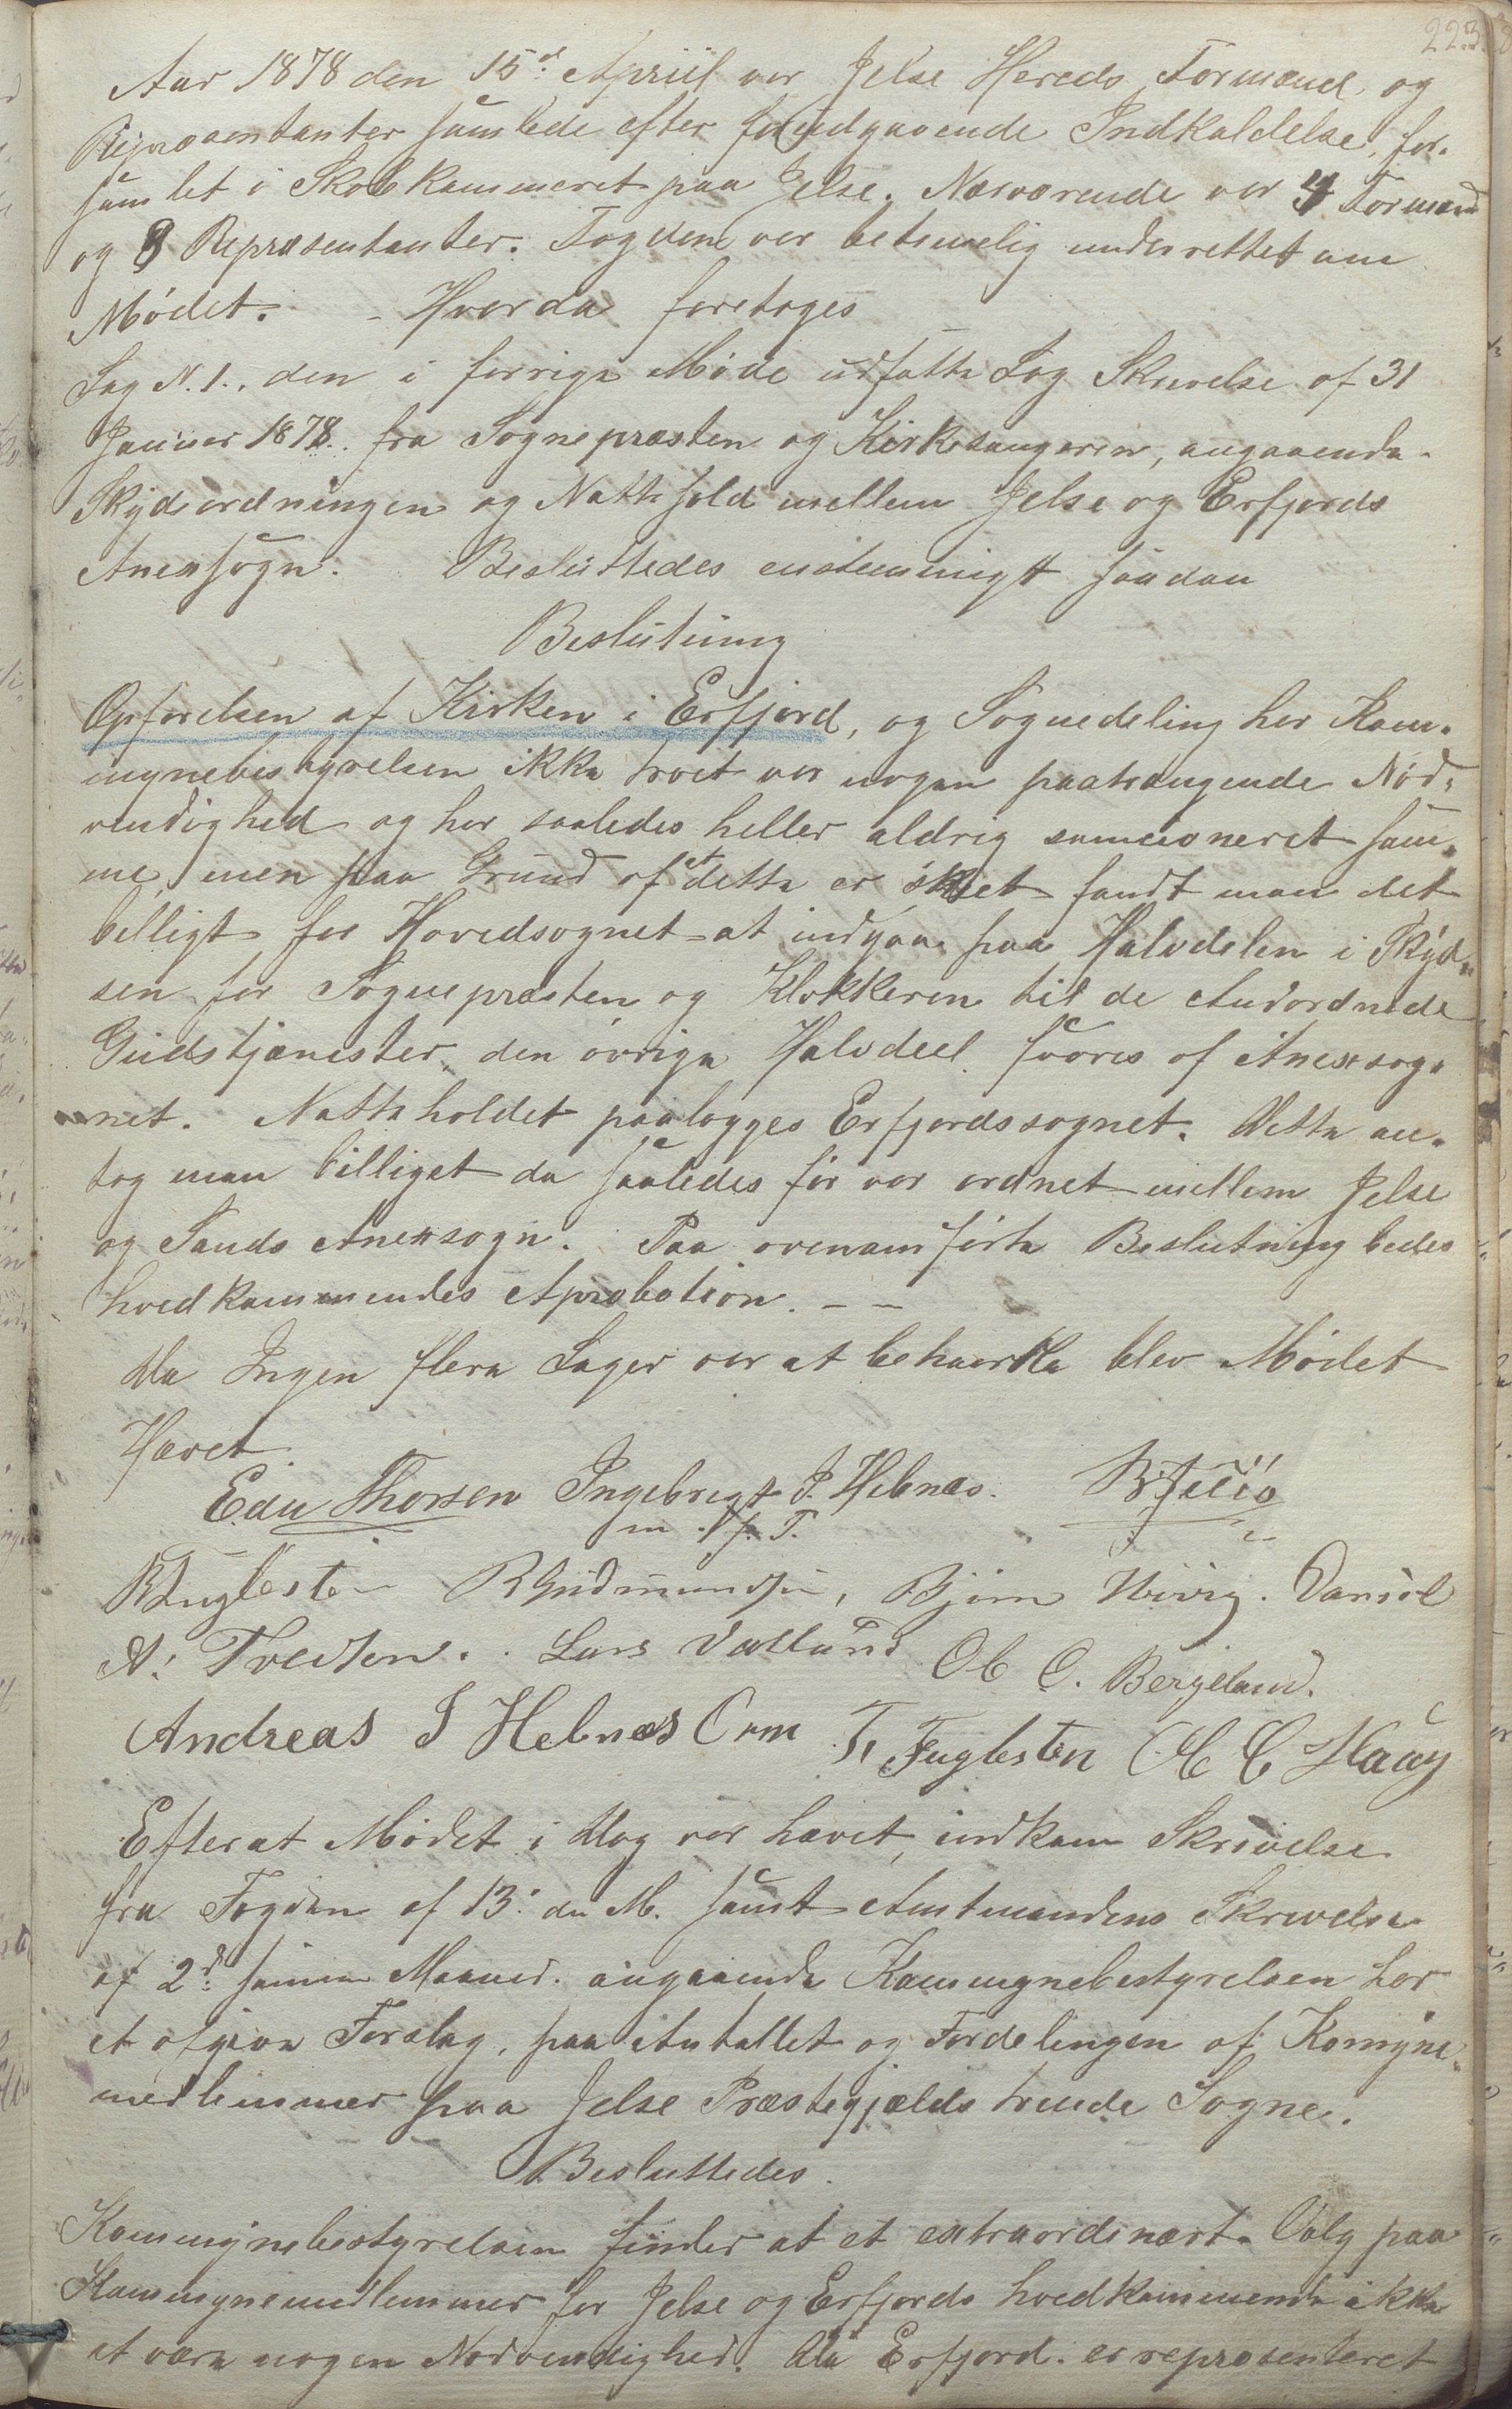 223
Aar 1878 den 15d: Apriil var Jelse Hereds Formænd og
Repræsentanter samlede efter forudgaaende Indkaldelse, for-
samlet i Skolekammeret paa Jelse. Nærværende var 4 Formænd
og 8 Repræsentanter. Fogden var betimelig underrettet om
Mødet. - Hvorda foretoges
Sag N. 1., den i forrige Møde udsatte Sag Skrivelse af 31
Januar 1878. fra Sognepræsten og Kirkesangeren, angaaende
Skydsordningen og Nattehold mellem Jelse og Erfjords
Anexsogn. Besluttedes enstemmigt saadan
Beslutning
Opførelsen af Kirken i Erfjord, og Sognedeling har Kom-
mynebestyrelsen ikke troet var nogen paatrængende Nød-
vendighed og har saaledes heller aldrig sancioneret sam-
me, men paa Grund af at dette er skeet fandt man det
billigt for Hovedsognet at indgaa paa Halvdelen i Skyd-
sen for Sognepræsten og Klokkeren til de Anordnede
Gudstjænester, den øvrige Halvdeel svares af Anexsog-
net. Natteholdet paalægges Erfjordssognet. Dette an-
tog man billiget da saaledes før var ordnet mellem Jelse
og Sands Anexsogn. Paa ovenamførte Beslutning bedes
hvedkommendes Aprobation. - -
Da Ingen flere Sager var at behandle blev Mødet
Hævet.
Edu Thorsen Ingebregt J. Hebnæs.
m. P.
Fuglesten R Gudmundsen, Bjørn Hviig. Daniel
A. Tveiten. Lars Vatland Ole O. Bergeland.
Andreas J Hebnæs Orm T. Fuglesten Ole C Haaý
Efterat Mødet i Dag var hævet, indkom Skrivelse
fra Fogden af 13: dn M. samt Amtmandens Skrivelse
af 2d: samme Maaned. angaaende Kommynebestyrelsen har
at afgive Forslag, paa Antallet og Fordelingen af Komyne-
medlemmer paa Jelse Præstegjælds trende Sogne.
Besluttedes.
Kommynebestyrelsen finder at et extraordinært Valg paa
Kommynemedlemmer for Jelse og Erfjords hvedkommende ikke
at være nogen Nødvendighed. Da Erfjord er repræsenteret